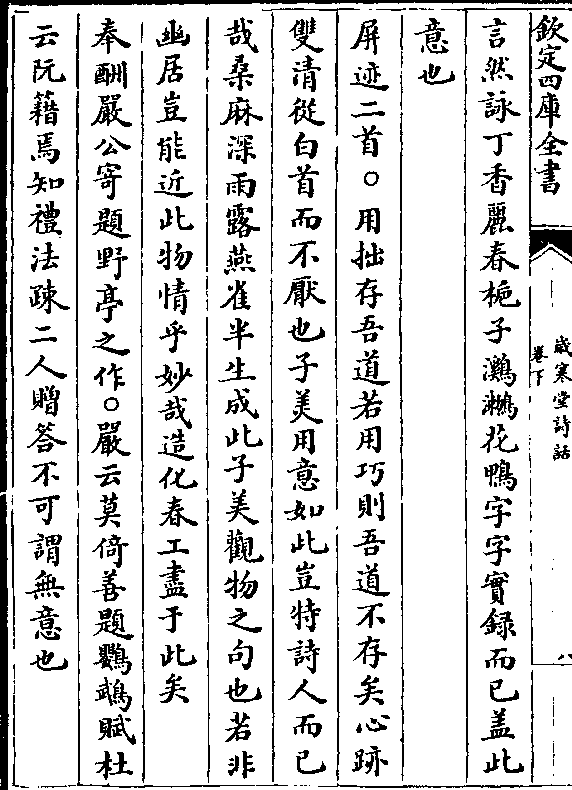 欽定四庫全書
歲寒堂詩話
卷下
八
言然詠丁香麗春梔子鸂鶒花鴨字字實録而已盖此
意也
屏迹二首○用拙存吾道若用巧則吾道不存矣心跡
雙清從白首而不厭也子美用意如此豈特詩人而已
哉桑麻深雨露燕雀半生成此子美觀物之句也若非
幽居豈能近此物情乎妙哉造化春工盡于此矣
奉酬嚴公寄題野亭之作○嚴云莫倚善題鸚鵡賦杜
云阮籍焉知禮法疎二人贈答不可謂無意也